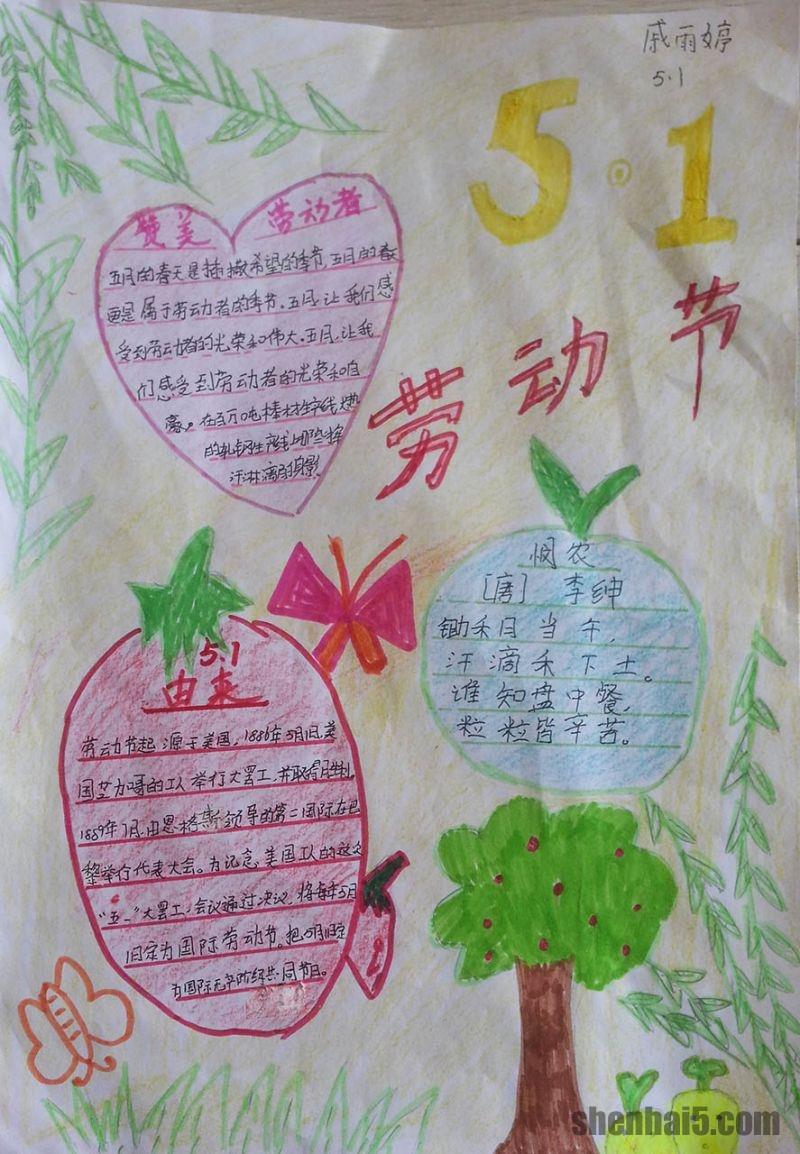 戚雨婷
5.1
5.1
劳动节
赞美 劳动者
五月的春天是播撒希望的季节,五月的春
更是属于劳动者的季节。五月,让我们感
受到劳动者的光荣和伟大。五月,让我
们感受到劳动者的光荣和自
豪。在百万吨棒材生产线,火热
的轧钢生产线上那些挥
汗淋漓的身影
悯农
[唐] 李绅
锄禾日当午,
汗滴禾下土。
谁知盘中餐,
粒粒皆辛苦。
5.1
由来
劳动节起源于美国,1886年5月1日,美
国芝加哥的工人举行大罢工,并取得胜利。
1889年7月,由恩格斯领导的第二国际在巴
黎举行代表大会。为记念美国工人的这次
“五一”大罢工,会议通过决议,将每年5月
1日定为国际劳动节。把5月1日定
为国际无产阶级共同节日。
shenbai5.com